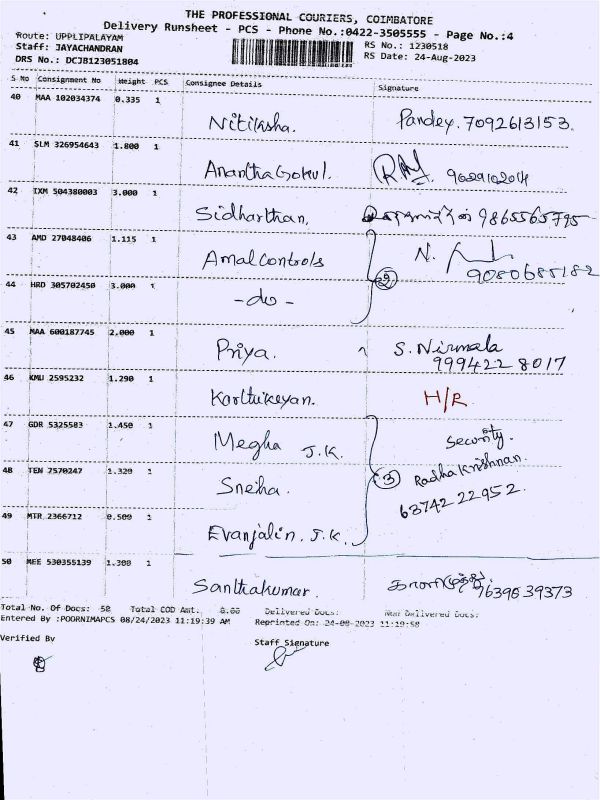 THE PROFESSIONAL COURIERS, COIMBATORE
Delivery Runsheet - PCS - Phone No.:0422-3505555 - Page No.:4
Route: UPPLIPALAYAM
RS No.: 1230518
Staff: JAYACHANDRAN
RS Date: 24-Aug-2023
DRS No.: DCJ8123051804
S No Consignment No Weight PCS Consignee Details Signature
40 MAA 102034374 0.335 1 Nitiksha. Pandey. 7092613153.
41 SLM 326954643 1.800 1 AnanthaGokul.
42 IXM 504380003 3.000 1 Sidharthan, 9865565795
43 AMD 27048406 1.115 1 Amal Controls N. 9080685182
44 HRD 305702450 3.000 1 -do- 2
45 MAA 600187745 2.000 1 Priya. S. Nirmala
9994228017
46 KMU 2595232 1.290 1 Karthikeyan. H/R
47 GDR 5325583 1.450 1 Megha J.K. Security.
48 TEN 2570247 1.320 1 Sneha. 3 Radhakrishnan.
63742 22952.
49 MTR 2366712 0.500 1 Evanjalin. J.K.
50 MEE 530355139 1.300 1 Santhakumar.
Total No. Of Docs: 50 Total COD Amt. 0.00 Delivered Docs: Non Delivered Docs:
Entered By :POORNIMAPCS 08/24/2023 11:19:39 AM Reprinted On: 24-08-2023 11:19:58
Verified By
Staff Signature